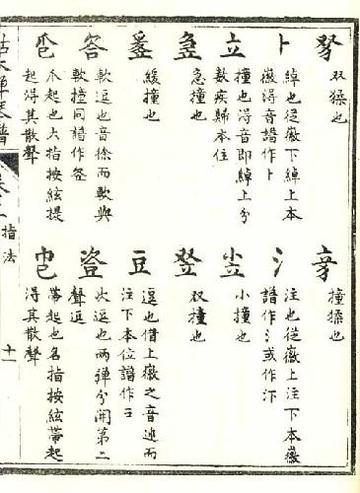 双猱也
撞猱也
卜
綽也從徽下綽上本
徽得音譜作卜
氵
注也從徽上注下本徽
譜作氵或作
立
撞也得音即綽上分
數疾歸本位
小撞也
急撞也
双撞也
緩撞也
豆
逗也借上徽之音逓而
注下本位譜作
軟逗也音徐而軟與
軟撞同譜作
次逗也两彈分開第二
聲逗
爪起也大指按絃提
起得其散聲
帶起也名指按絃帶起
得其散聲
木禪琴譜
指法
十一